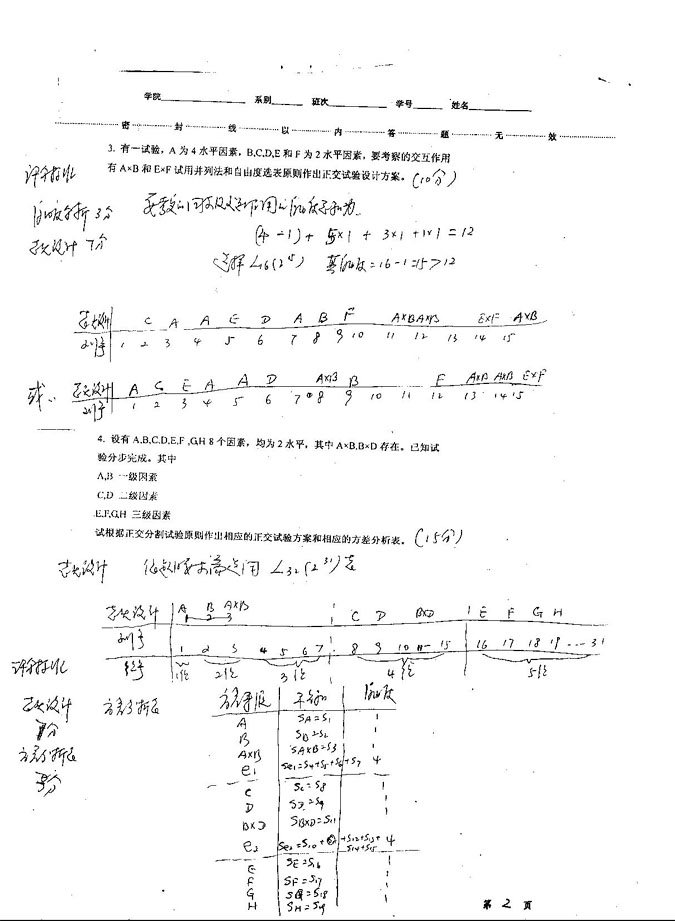 学院 系别 班次 学号 姓名
密 封 线 以 内 答 题 无 效
3. 有一试验，A 为 4 水平因素，B,C,D,E 和 F 为 2 水平因素，要考察的交互作用
有 A×B 和 E×F 试用并列法和自由度选表原则作出正交试验设计方案。(10分)
评分标准
自由度分析 3分
表头设计 7分
(4-1)+ 5×1 + 3×1 +1×1 = 12
选择 L16(2^15) 其自由度=16-1=15>12
表头设计 C A A E D A B F A×B A×B E×F A×B
列号 1 2 3 4 5 6 7 8 9 10 11 12 13 14 15
或: 表头设计 A C E A A D A×B B F A×B A×B E×F
列号 1 2 3 4 5 6 7 8 9 10 11 12 13 14 15
4. 设有 A,B,C,D,E,F ,G,H 8 个因素，均为 2 水平，其中 A×B,B×D 存在。已知试
验分步完成。其中
A,B 一级因素
C,D 二级因素
E,F,G,H 三级因素
试根据正交分割试验原则作出相应的正交试验方案和相应的方差分析表。(15分)
表头设计 选用 L32(2^31)表
表头设计 A B A×B C D B×D E F G H
列号 1 2 3 4 5 6 7 8 9 10 11 … 15 16 17 18 19 … 31
组号 1组 2组 3组 4组 5组
评分标准
表头设计
方差分析表
方差分析表
方差来源 平方和 自由度
A SA=S1 1
B SB=S2 1
A×B SA×B=S3 1
e1 Se1=S4+S5+S6+S7 4
C Sc=S8 1
D SD=S9 1
B×D SB×D=S11 1
e2 Se2=S10+ +S12+S13+S14+S15 4
E SE=S16 1
F SF=S17 1
G SG=S18 1
H SH=S19 1
第 2 页